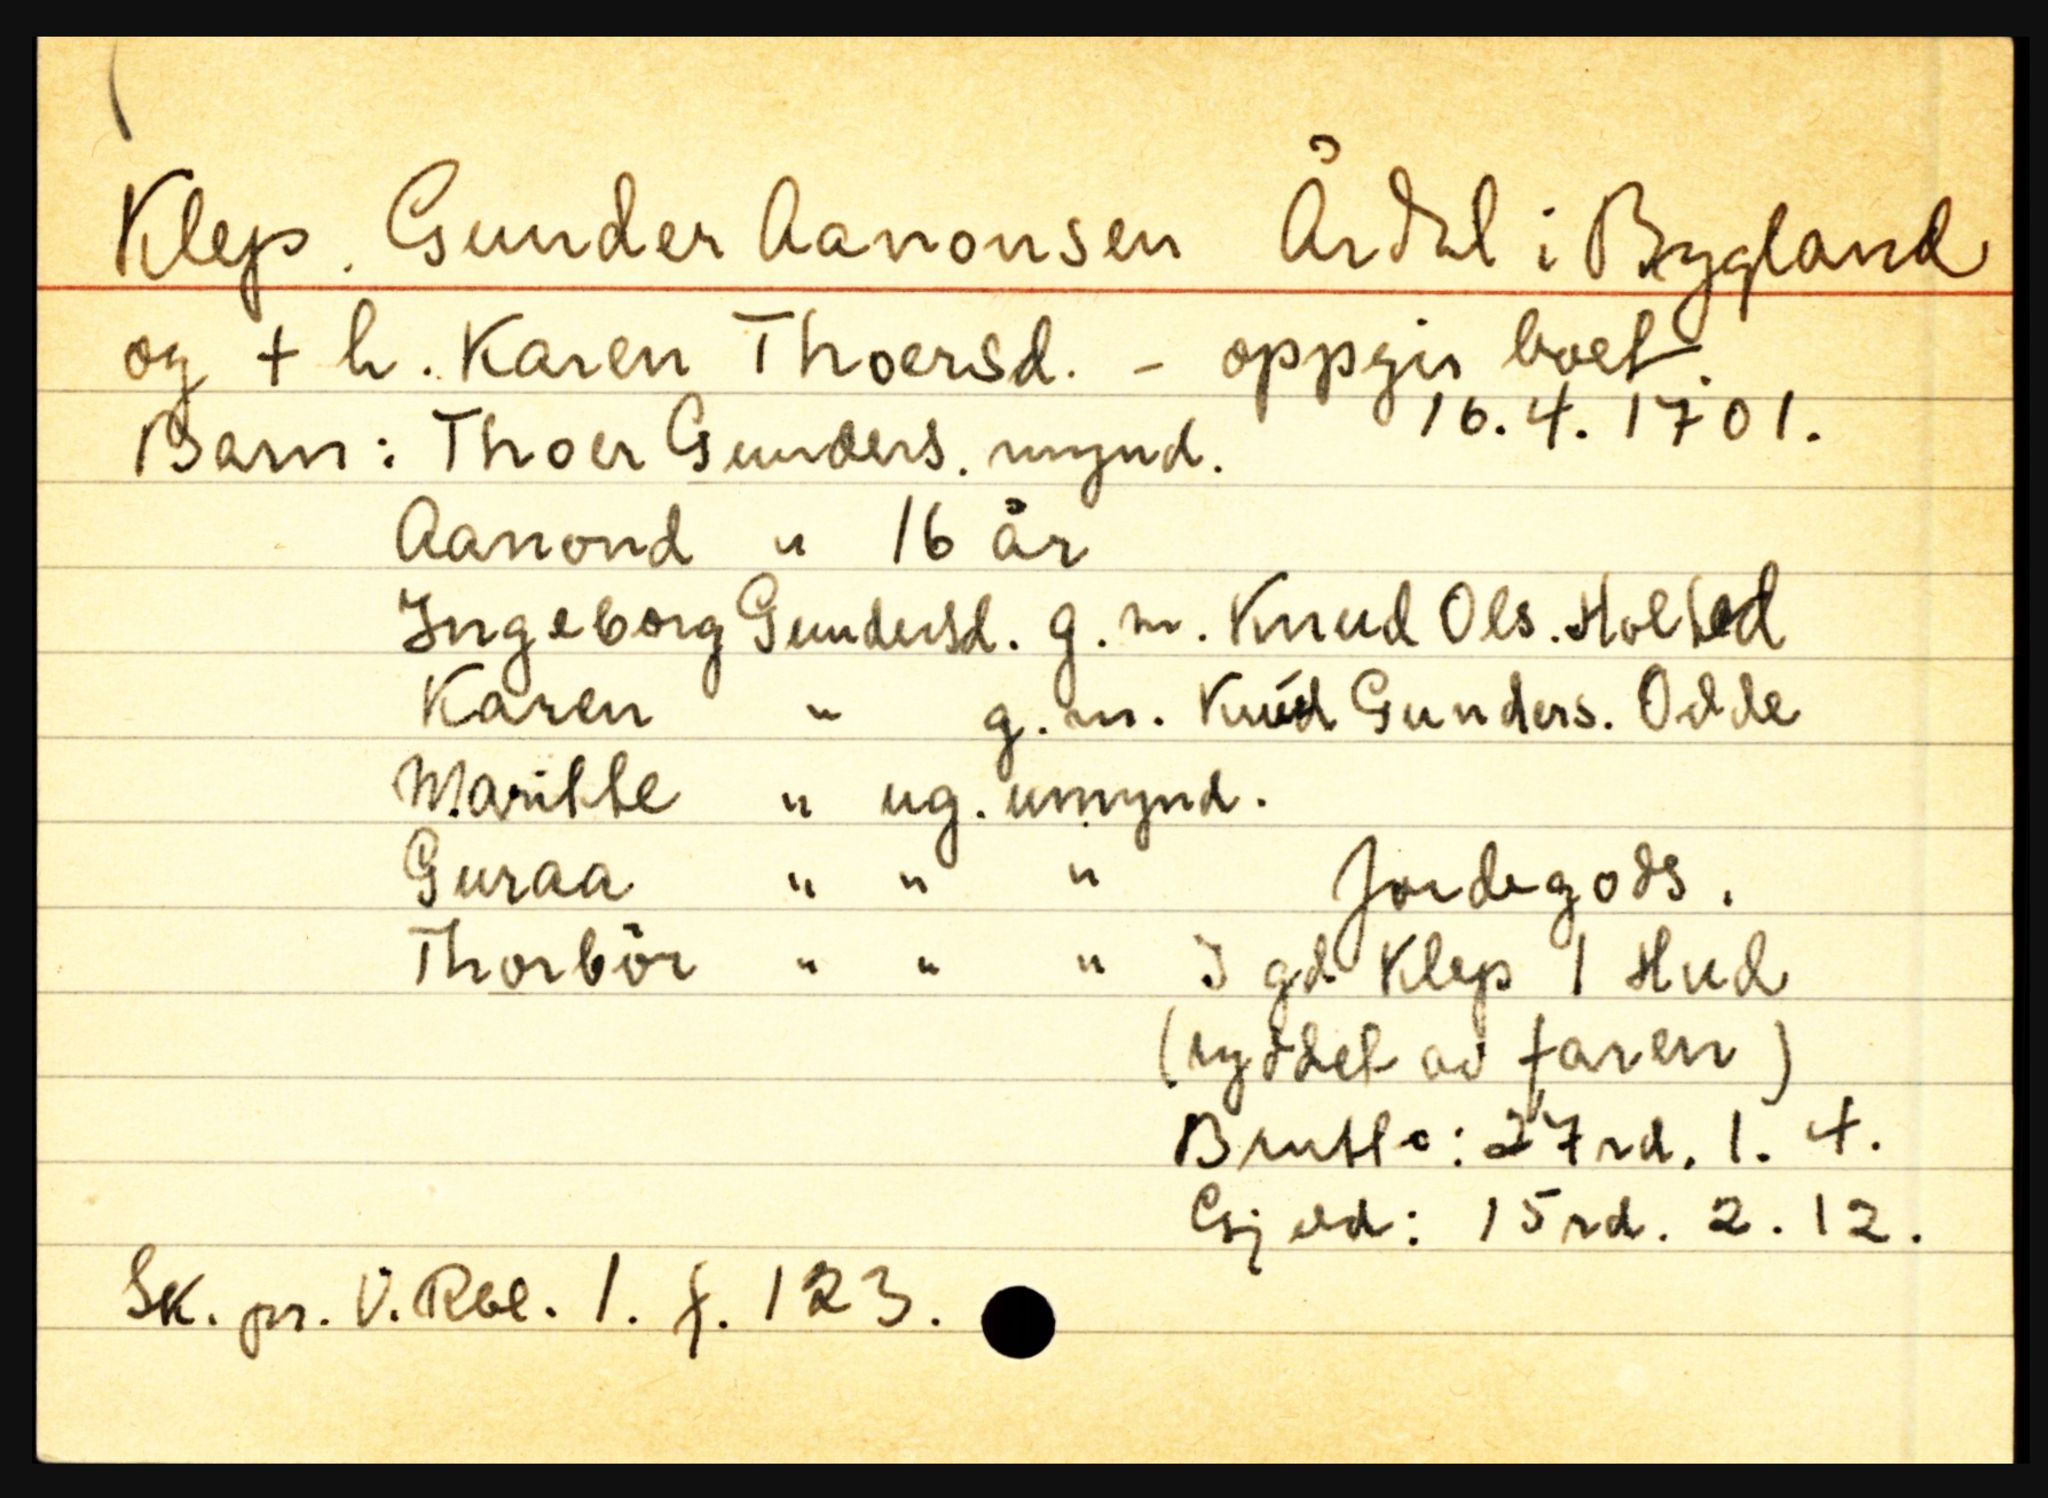 Klep. Gunder Aanonsen Årdal i Bygland
og + h. Karen Thoersd. - oppgir boet.
16.4.1701.
Barn: Thoer Gunders. mynd.
Aanond " 16 år
Ingeborg Gundersd. g.m. Knud Ols. Holted
Karen " g.m. Knud Gunders. Odde
Maritte " ug. umynd.
Guraa " " "
Jordegods.
Thorbör " " " I gd Klep 1 Hud
(ryddet av faren)
Brutto: 27 rd. 1. 4.
Gjeld: 15 rd. 2. 12.
Sk. pr. V. Rbl. 1. f. 123.